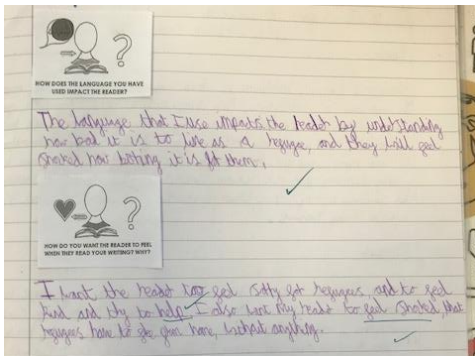 HOW DOES THE LANGUAGE YOU HAVE
USED IMPACT THE READER?
The language that I use impacts the reader by understanding
how bad it is to live as a refugee, and they will feel
shaked how it is for them.
HOW DO YOU WANT THE READER TO FEEL
WHEN THEY READ YOUR WRITING? WHY?
I want the reader to feel sorry for refugees and to feel
kind and try to help. I also want my reader to feel shaked, that
refugees have to go from home, without anything.